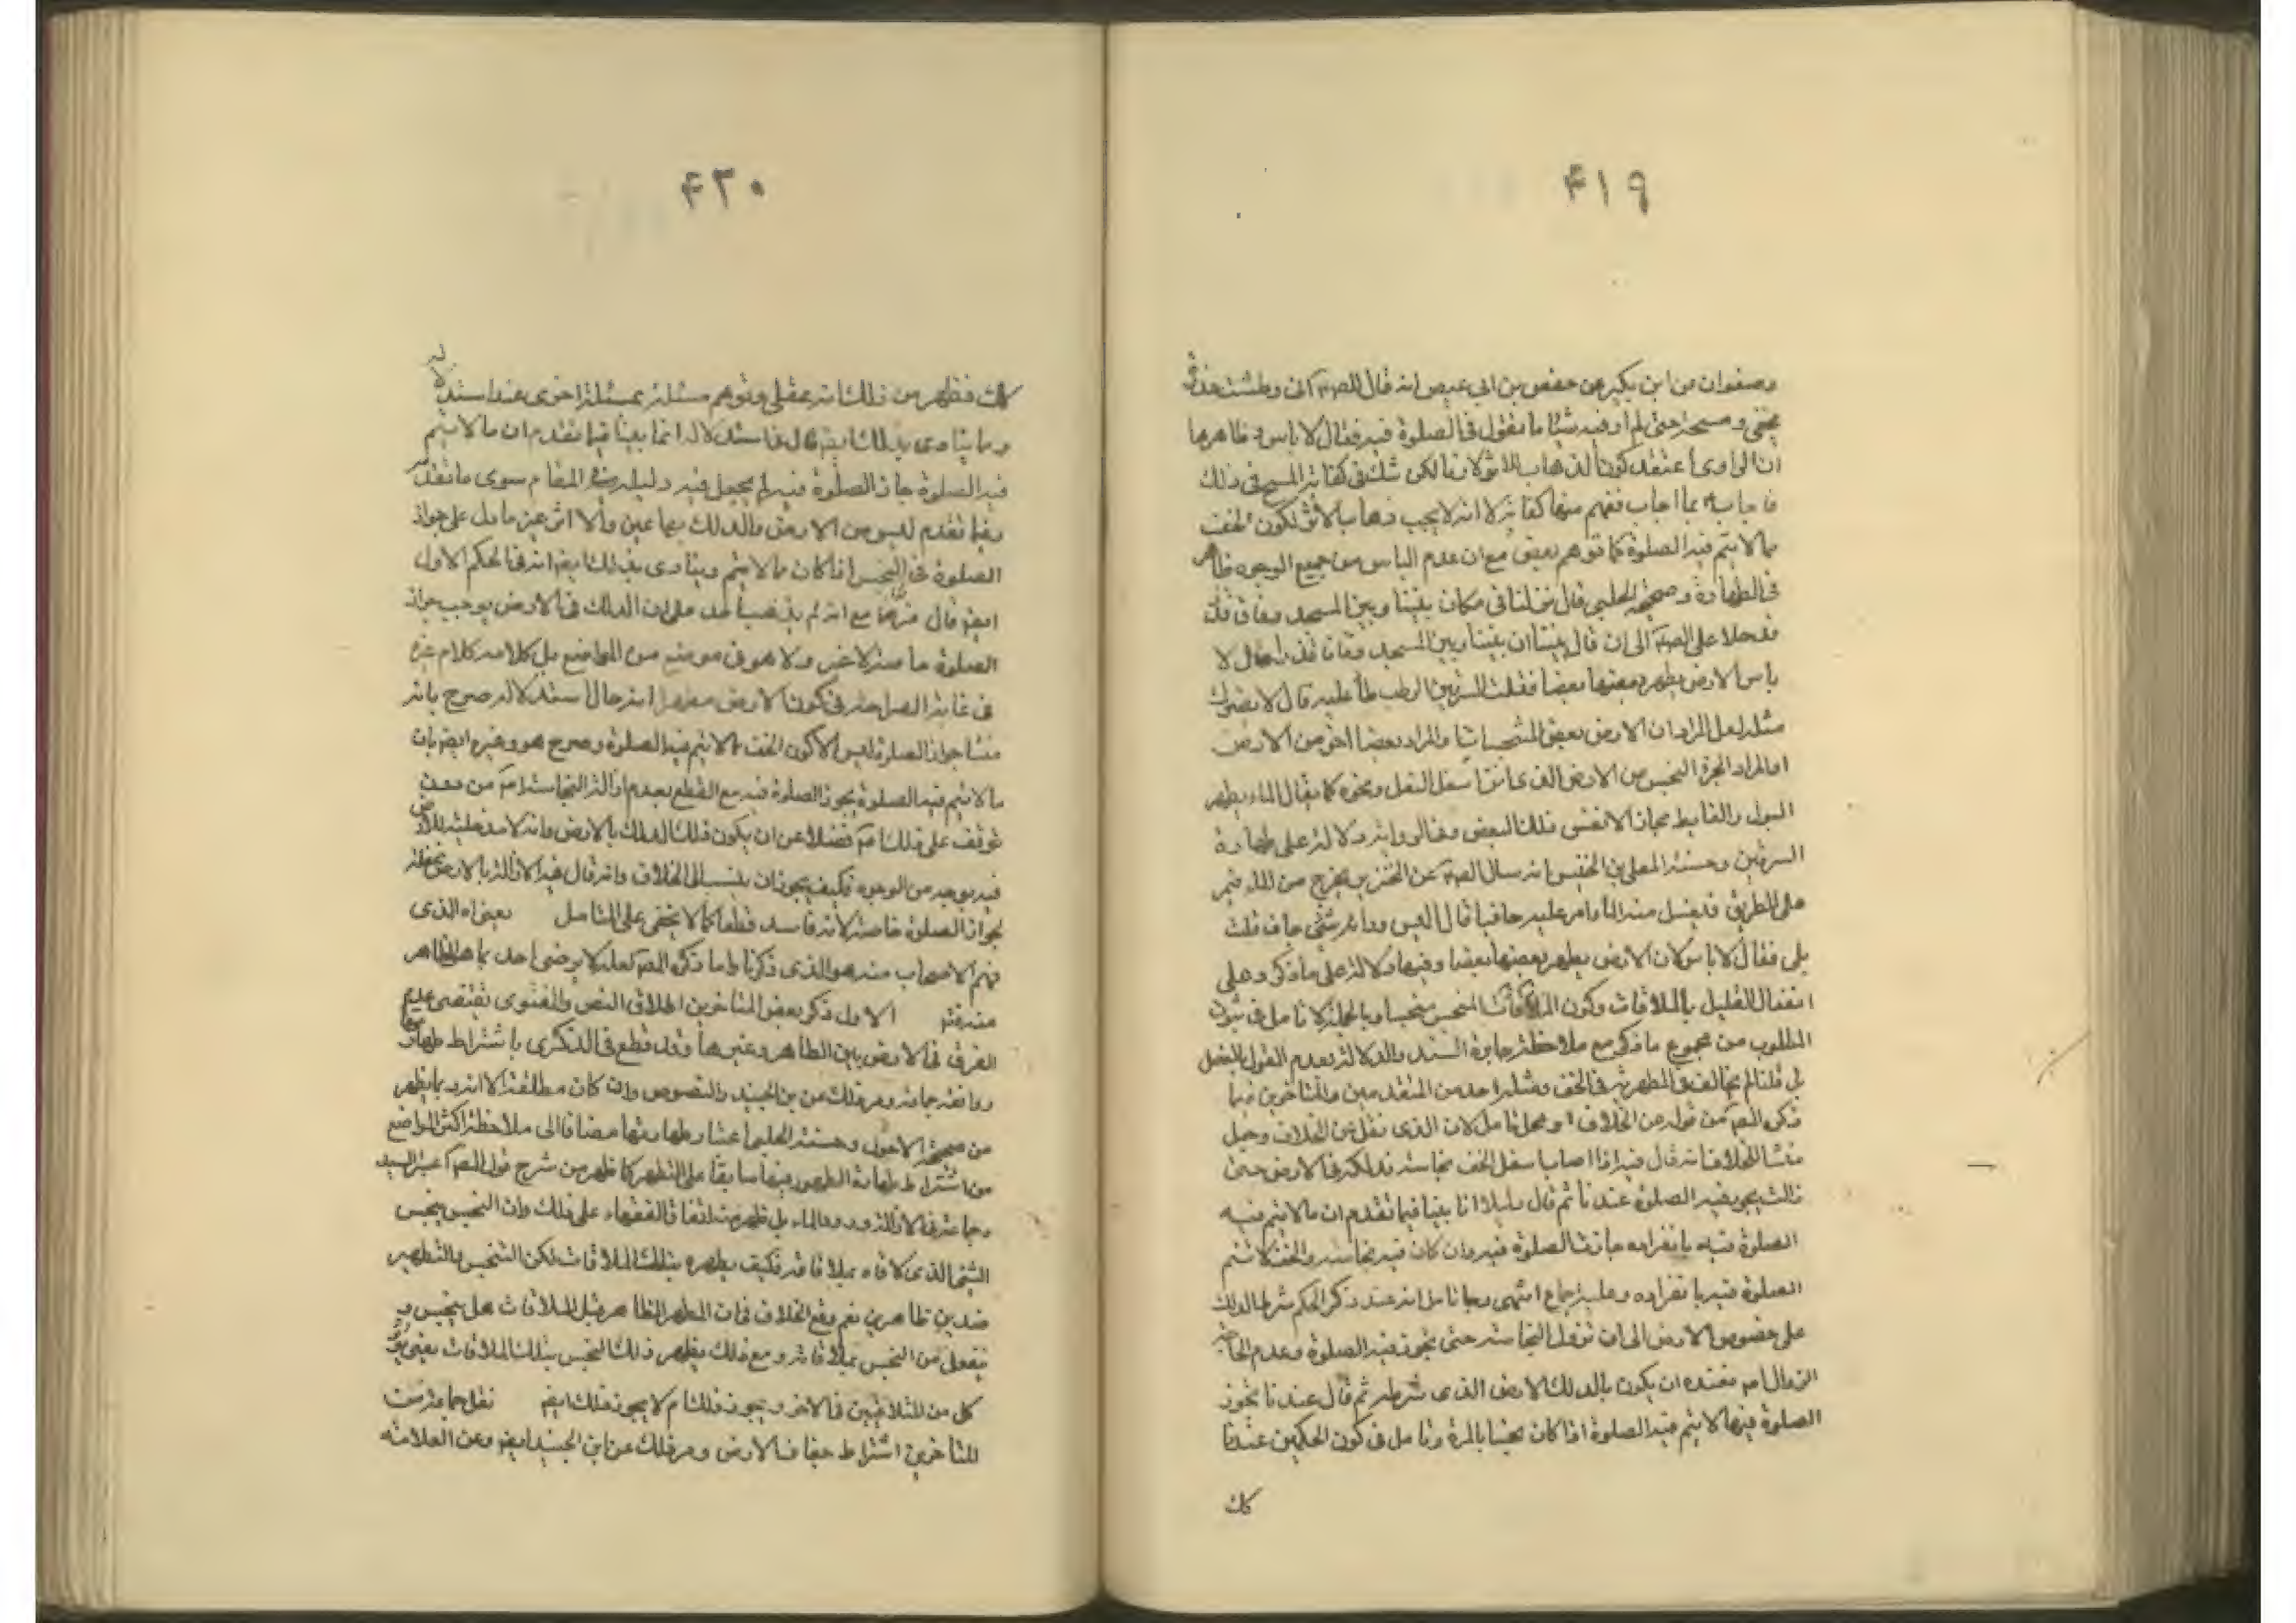 ۴۱۹
وصفوان عن ابن بكير عن حفص بن ابي عيص انه قال للصم انى وطئت عذرة
بخفى ومسحته حتى لم ار فيه شيئا ما تقول فى الصلوة فيه فقال لا باس وظاهرها
ان الراوى اعتقد كون الذهاب للاثر لازما لكن شك فى كفاية المسح فى ذلك
فاجاب بما اجاب ففهم منها كفايته لا انه لا يجب ذهاب الاثر لكون الخف
مما لا يتم فيه الصلوة كما توهم بعض مع ان عدم الباس من جميع الوجوه ظاهر
فى الطهارة وصحيحة الحلبى قال نزلنا فى مكان بيننا وبين المسجد زقاق قذر
فدخلا على الصم الى ان قال بيننا ان بيننا وبين المسجد زقاقا قذرا فقال لا
باس الارض يطهر بعضها بعضا فقلت السرقين الرطب اطأ عليه قال لا يضرك
مثله لعل المراد ان الارض بعض المتنجسات والمراد بعضا اخر من الارض
او المراد الجزء النجس من الارض الذى لزق اسفل النعل ونحوه كما يقال الماء يطهر
البول والغايط مجازا لا نفس ذلك البعض دلالة على طهارة
السرقين وحسنة المعلى بن الخنيس انه سال الصم عن الخنزير يخرج من الماء فيمر
على الطريق فيسيل منه الماء امر عليه حافيا قال اليس وراءه شئ جاف قلت
بلى فقال لا باس لان الارض يطهر بعضها بعضا وفيها دلالة على ما ذكر وعلى
انفعال القليل بالملاقات وكون الملاقات المنجس منجسا وبالجملة لا تامل فى ثبوت
المطلوب من مجموع ما ذكر مع ملاحظة جابرة السند والدلالة وعدم القول بالفصل
بل قلنا لم يخالف فى المطهرية فى الخف ومثله احد من المتقدمين والمتاخرين فما
ذكره المصم من قوله من الخلاف محل تامل لان الذى نقل عن الخلاف وجعل
منشا للخلاف انه قال فيه اذا اصاب اسفل الخف نجاسة فدلكه فى الارض حتى
زالت يجوز فيه الصلوة عندنا ثم قال دليلنا انا بينا فيما تقدم ان ما لا يتم فيه
الصلوة فيه بانفراده جازت الصلوة فيه وان كان فيه نجاسة والخف لا تتم
الصلوة فيه بانفراده وعليه اجماع انتهى وجه تامل انه عند ذكر الحكم شرط الدلك
على خصوص الارض الى ان تزول النجاسة حتى يجوز فيه الصلوة وعدم
الزوال ان يكون بالدلك الارض الذى شرطه ثم قال عندنا تجوز
الصلوة فيها لا يتم فيه الصلوة اذا كان نجسا بالمرة وتامل فى كون الحكمين عندنا
كك
۴۲۰
كك فظهر من ذلك انه غفل وتوهم مسئلة بمسئلة اخرى عند استدلاله
ومما ينادى بذلك ايضا قال فى استدلاله انما بينا فيما تقدم ان ما لا يتم
فيه الصلوة جاز الصلوة فيه لم يجعل فيه دليله فى المقام سوى ما تقدم
وفيما تقدم ليس من الارض والدلك بها عين ولا اثر غير ما دل على جواز
الصلوة فى النجس اذا كان مما لا يتم وينادى بذلك ايضا انه فى الحكم الاول
ايضا قال مع انه لم يذهب احد على ان الدلك فى الارض يوجب جواز
الصلوة خاصة لا غير ولا هو فى موضع من المواضع بل كلامه كلام غيره
فى غاية الصراحة فى كون الارض مطهرا انه حال استدلاله صرح بانه
منشا جواز الصلوة ليس الا كون الخف مما لا يتم فيه الصلوة وصرح هو وغيره ايضا بان
ما لا يتم فيه الصلوة يجوز الصلوة فيه مع القطع بعدم ازالة النجاسة من دون
توقف على ذلك فضلا عن ان يكون ذلك الدلك بالارض وانه لا مدخلية للارض
فيه بوجه من الوجوه فكيف يجوز ان ينسب الى الخلاف وانه قال هذه الازالة بالارض
لجواز الصلوة خاصة لانه فاسد قطعا كما لا يخفى على المتامل بمعناه الذى
فهم الاصحاب منه هو الذى ذكرنا واما ذكره المصم لعله لا يرضى احد بما هو الظاهر
منه الاول ذكر بعض المتاخرين اطلاق النص والفتوى تقتضى عدم
الفرق فى الارض بين الطاهر وغيرها وقد قطع فى الذكرى باشتراط طهارتها
ووافقه جماعة وعرفت ذلك عن بن الجنيد والنصوص وان كان مطلقة الا انه ربما يظهر
من صحيحة الاحول وحسنة الحلبى اعتبار طهارتها مضافا الى ملاحظة اكثر المواضع
من اشتراط طهارة الطهور فيها سابقا على التطهر كما ظهر من شرح قول المصم اعتبر السيد
وجماعة فى الازالة ورود الماء بل ظهر من اتفاق الفقهاء على ذلك وان النجس ينجس
الشئ الذى لاقاه بملاقاته فكيف يطهره بتلك الملاقات لكن التنجيس والتطهير
ضدين ظاهرين نعم وقع الخلاف فى ان المطهر الطاهر قبل الملاقات هل ينجس و
ينفعل من النجس بملاقاته ومع ذلك يطهر ذلك النجس بتلك الملاقات يعنى يؤثر
كل من المتلاقيين فى الاخر ويجوز ذلك ام لا يجوز ذلك ايضا نقل جماعة من
المتاخرين اشتراط جفاف الارض وعرفت ذلك عن ابن الجنيد ايضا وعن العلامة